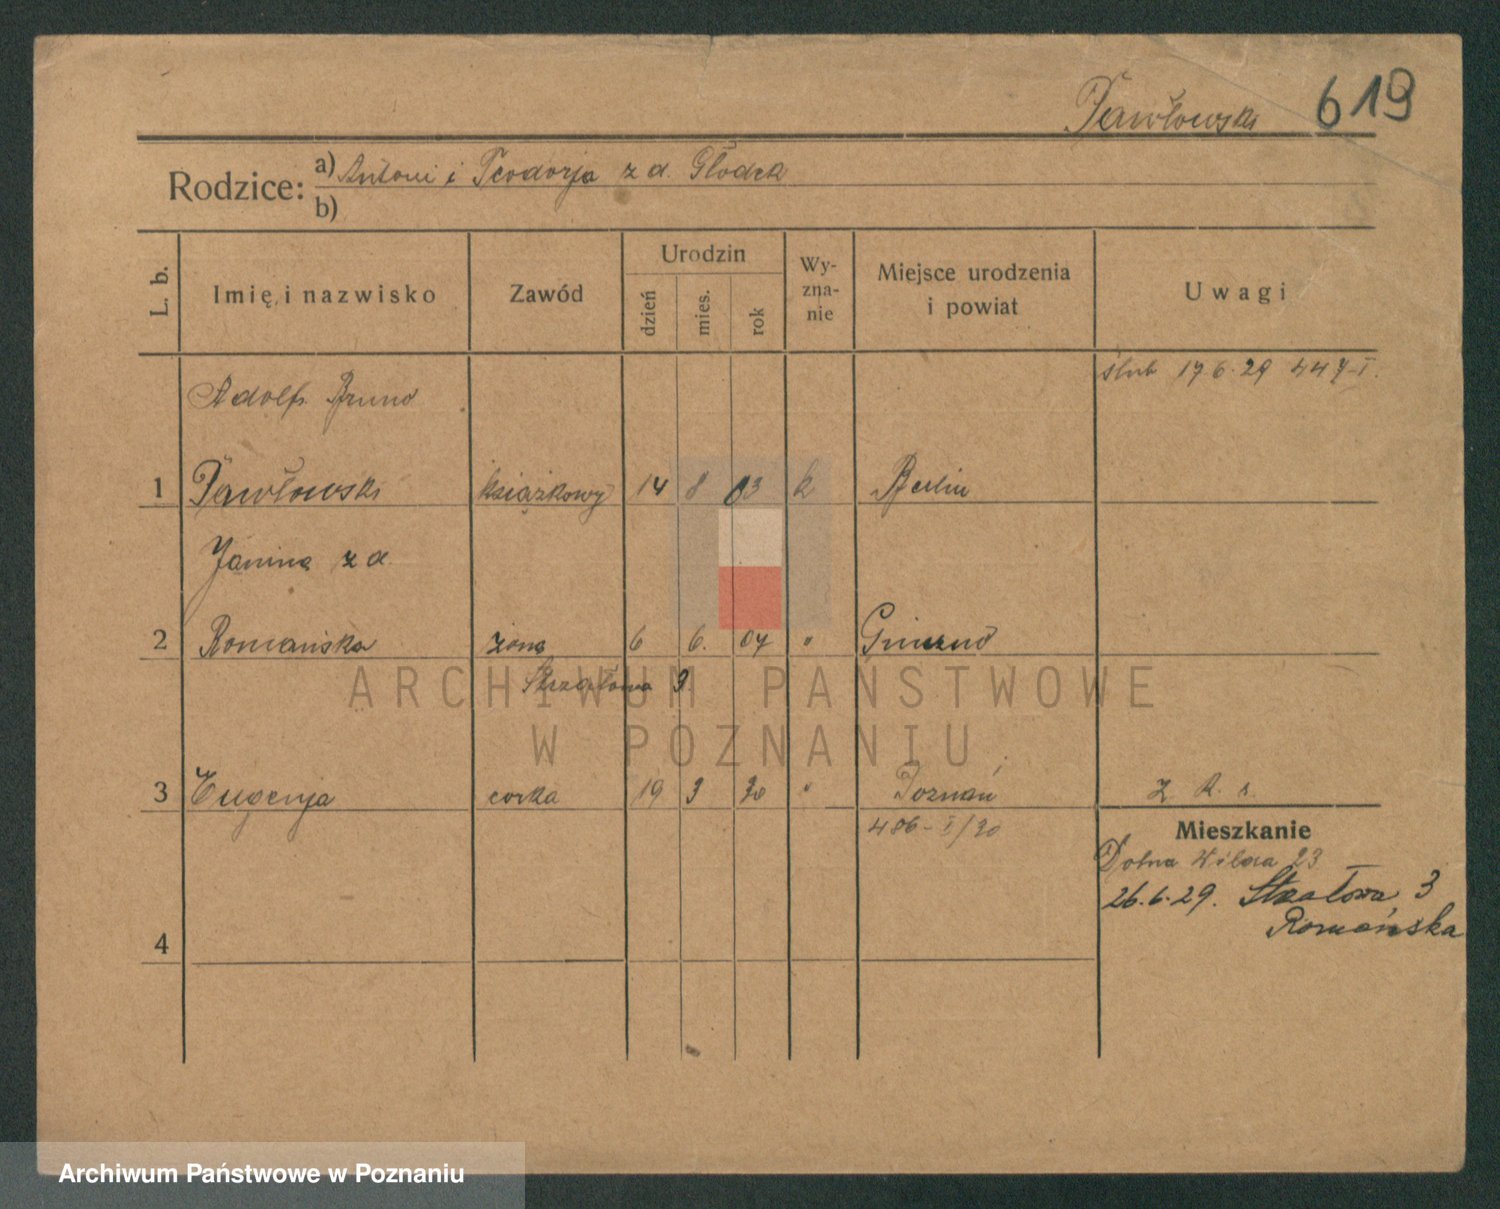 Pawłowski 619
Rodzice: a) Antoni i Teodorja z d. Głodek
b)
L. b. Imię i nazwisko Zawód Urodzin dzień mies. rok Wy-zna-nie Miejsce urodzenia i powiat Uwagi
ślub 17.6.29 447-I.
Adolf Bruno
1 Pawłowski książkowy 14 8 03 k Berlin
Janina z d.
2 Romańska żona 6 6. 07 " Gniezno
Strzałowa 3
ARCHIWUM PAŃSTWOWE
W POZNANIU
3 Eugenja corka 19 3 30 " Poznań
486-I/30
Mieszkanie
Dolna Wilda 23
26.6.29. Strzałowa 3
Romańska
4
Archiwum Państwowe w Poznaniu